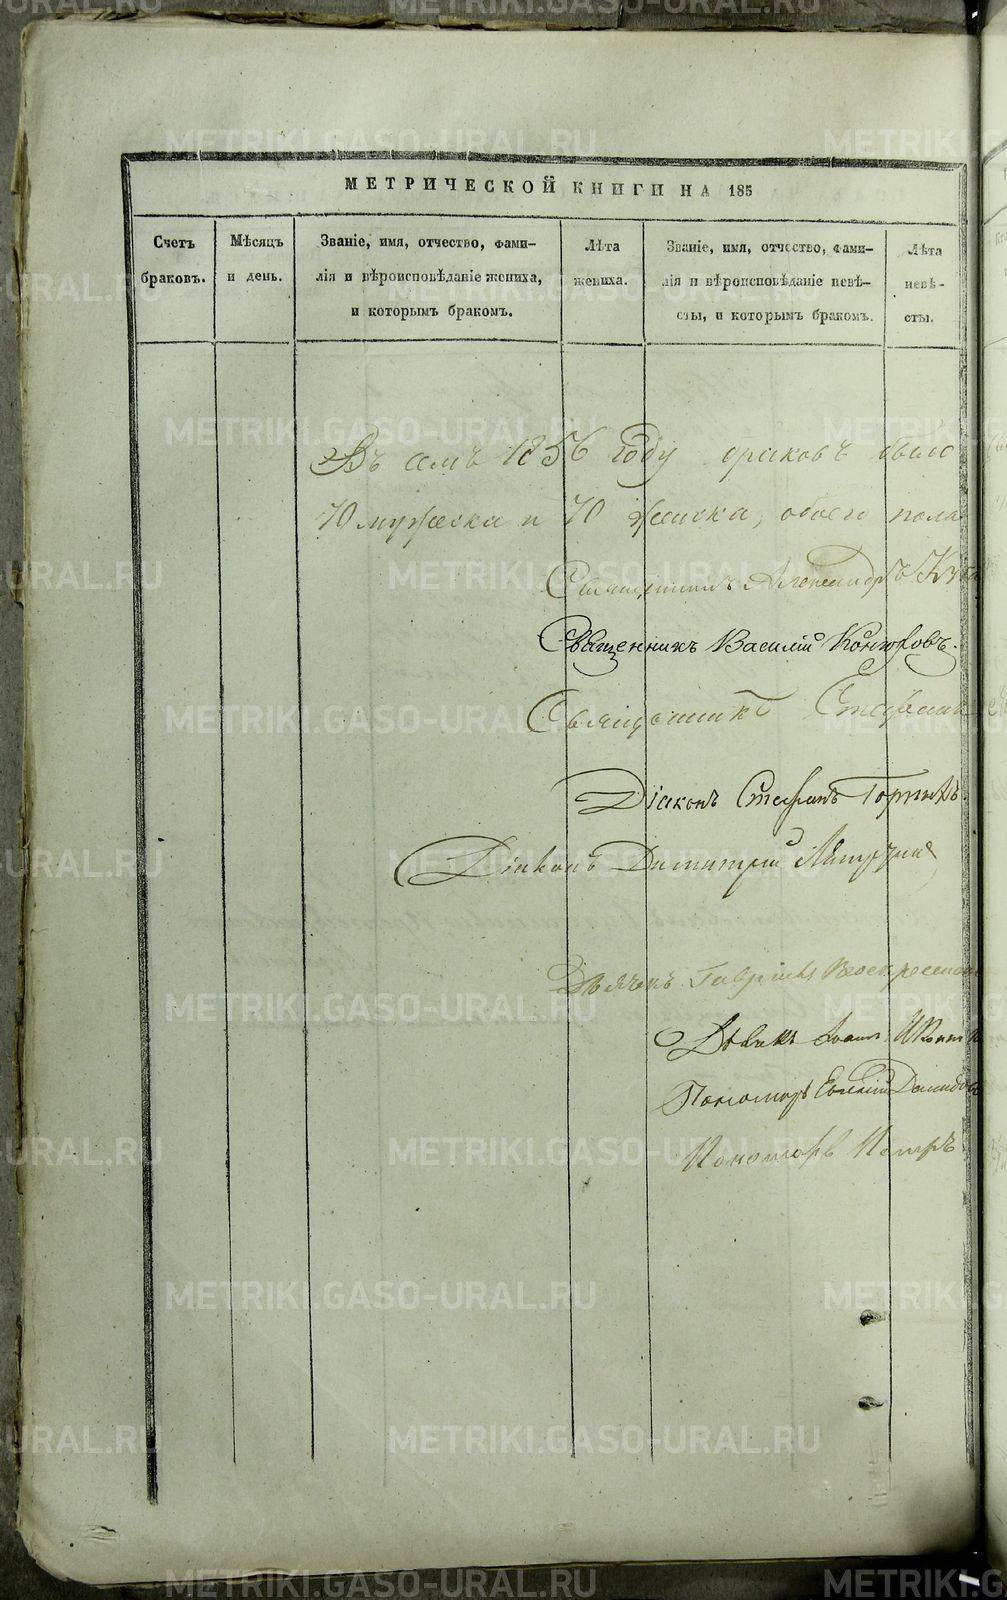 МЕТРИЧЕСКОЙ КНИГИ НА 185
Счетъ
браковъ.
Мѣсяцъ
и день.
Званіе, имя, отчество, фами-
лія и вѣроисповѣданіе жениха,
и которымъ бракомъ.
Лѣта
жениха.
Званіе, имя, отчество, фами-
лія и вѣроисповѣданіе невѣ-
сты, и которымъ бракомъ.
Лѣта
невѣ-
сты.
Въ семъ 1856 году браковъ было
70 мужеска и 70 женска, обоего пола
Священникъ Александръ
Священникъ Василій Конюховъ.
Священникъ Стефанъ
Діаконъ Стефанъ
Діаконъ Димитрій
Дьячекъ Гавріилъ
Дьячекъ Іоаннъ
Пономарь Евгеній
Пономарь Петръ
METRIKI.GASO-URAL.RU